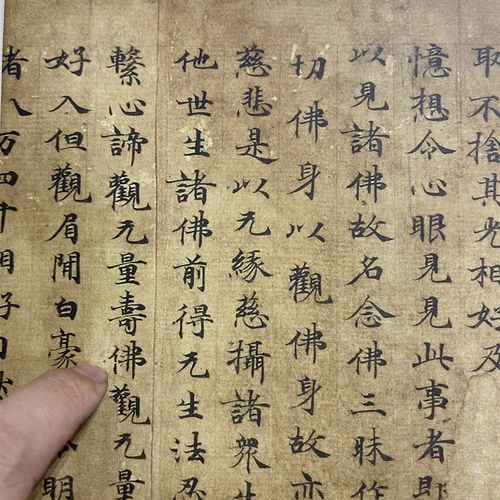 取不捨其光相好及
憶想令心眼見見此事者即
以見諸佛故名念佛三昧作
切佛身以觀佛身故亦
慈悲是以无緣慈攝諸眾生
他世生諸佛前得无生法忍
繫心諦觀无量壽佛觀无量
好入但觀眉閒白豪明
者八万四千相好自然